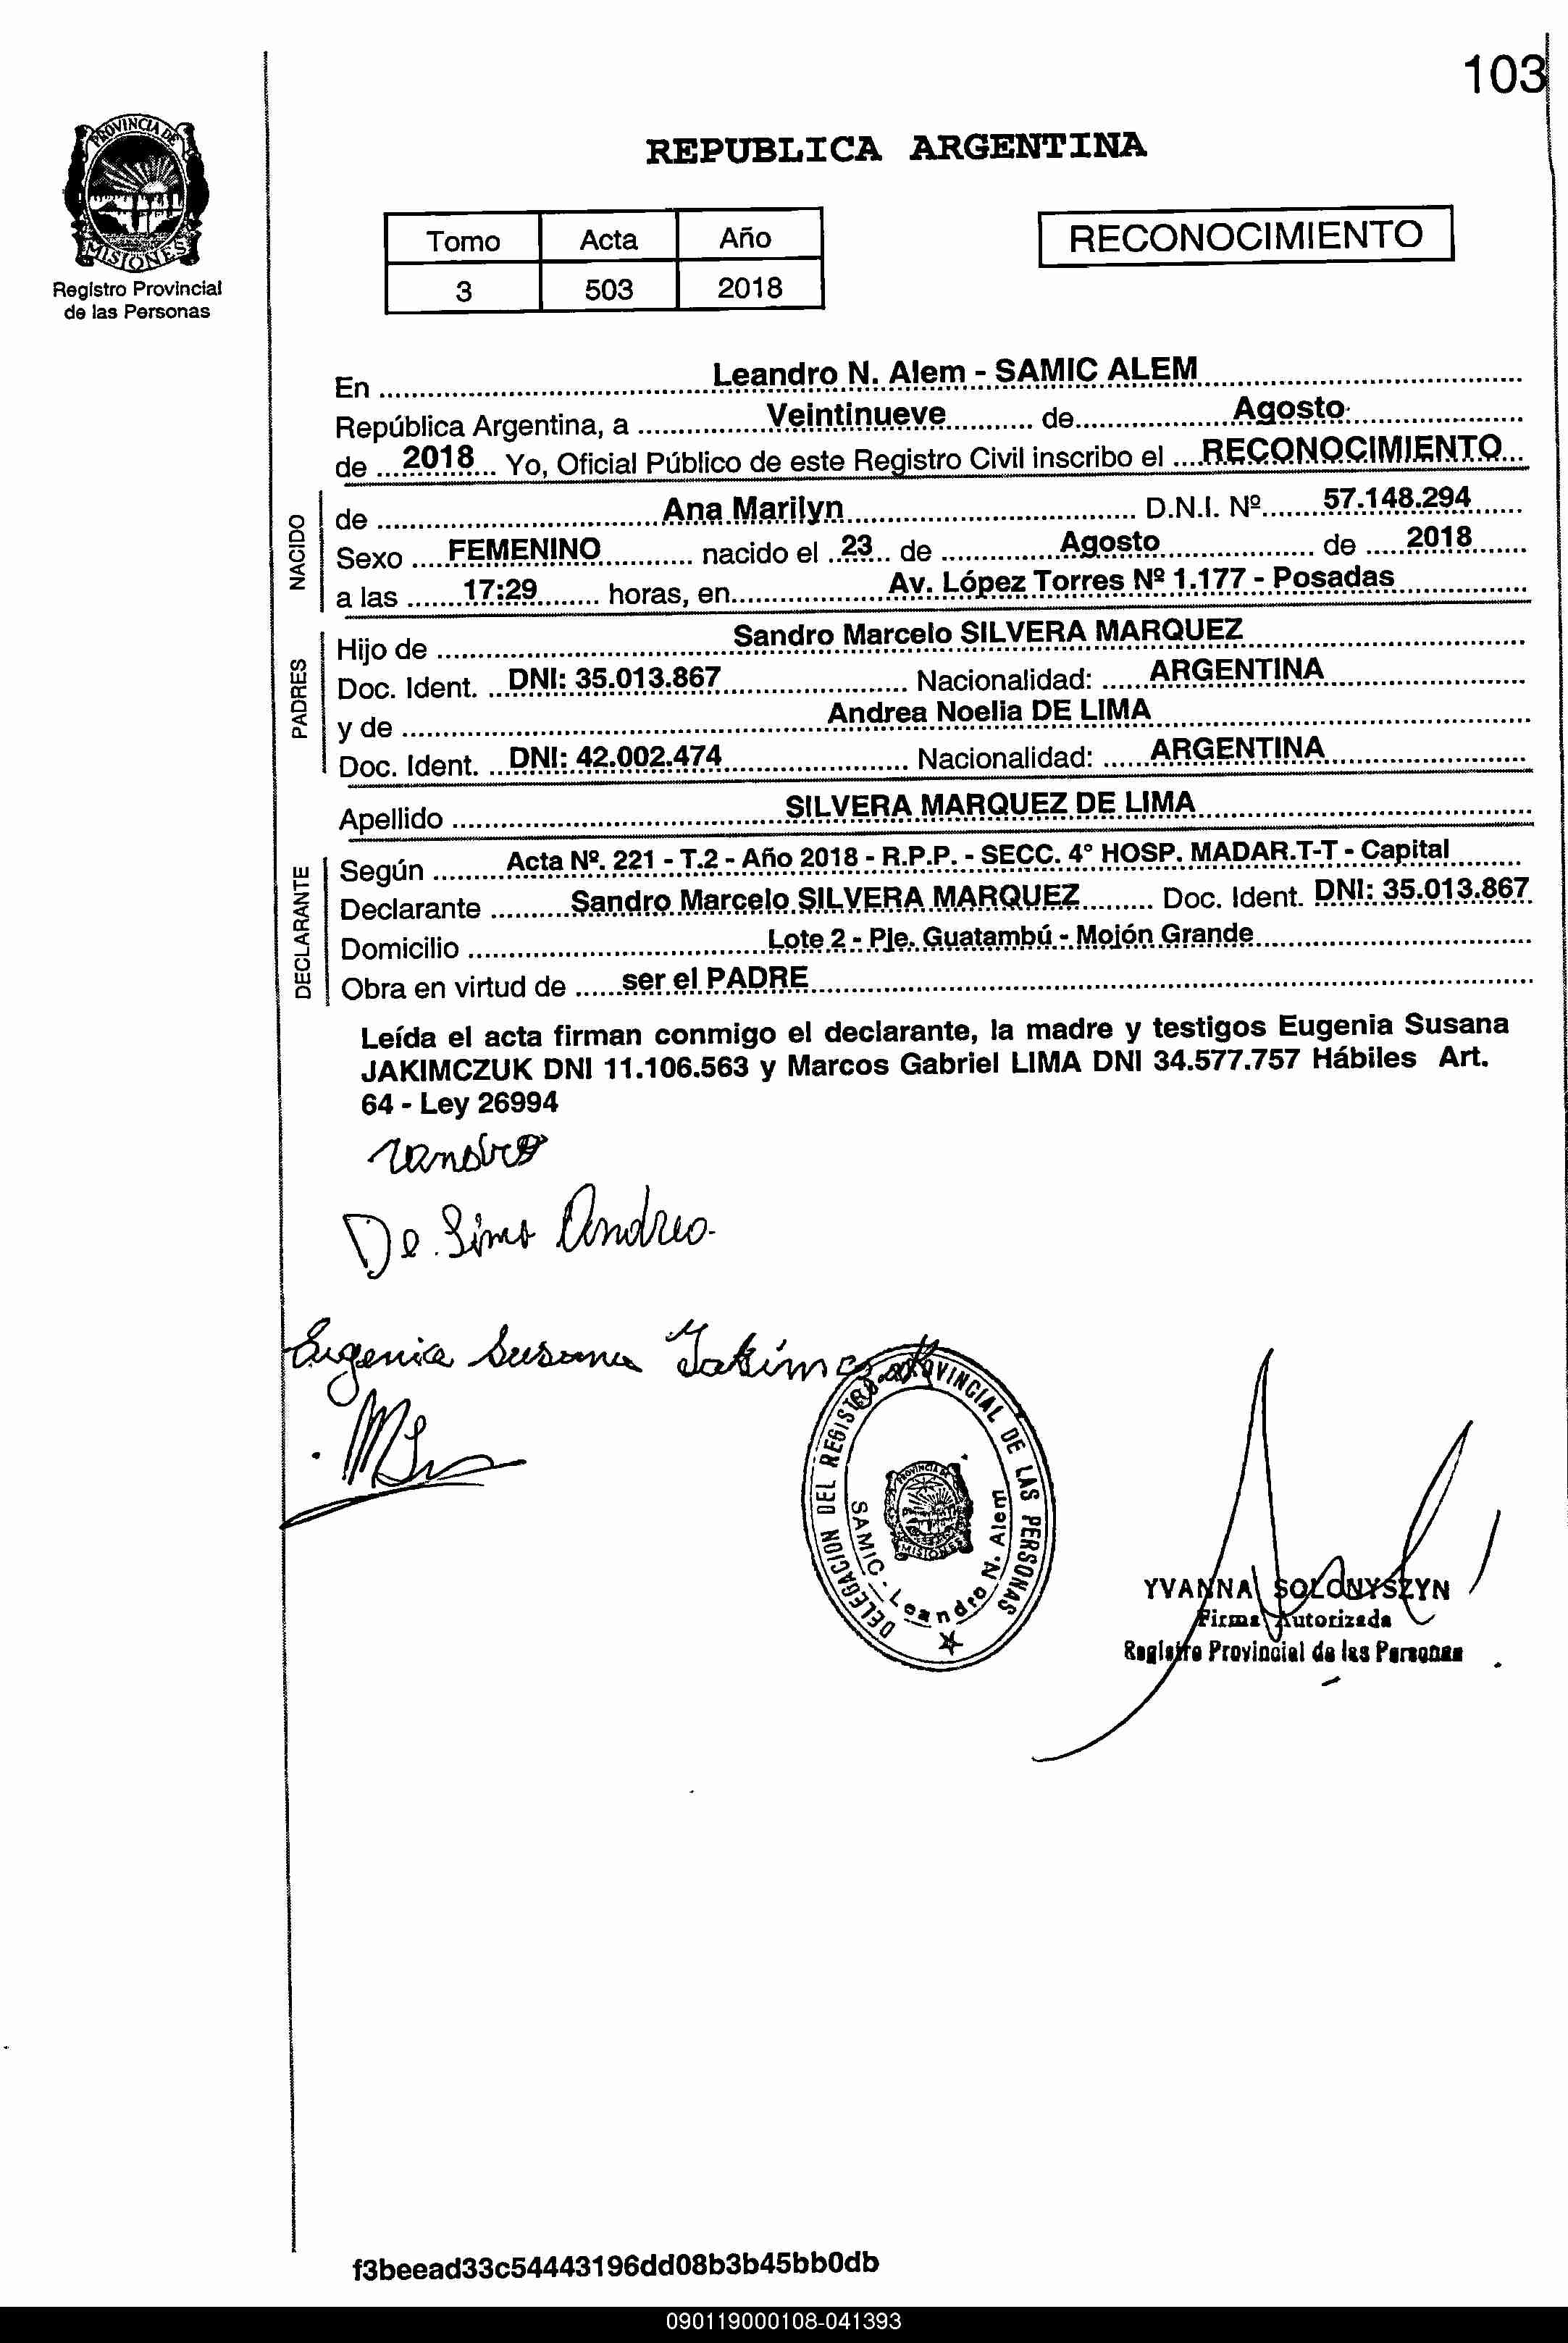 103
PROVINCIA DE
MISIONES
Registro Provincial
de las Personas
REPUBLICA ARGENTINA
Tomo Acta Año
3 503 2018
RECONOCIMIENTO
En Leandro N. Alem - SAMIC ALEM
República Argentina, a Veintinueve de Agosto
de 2018 Yo, Oficial Público de este Registro Civil inscribo el RECONOCIMIENTO
NACIDO
de Ana Marilyn D.N.I. Nº 57.148.294
Sexo FEMENINO nacido el 23 de Agosto de 2018
a las 17:29 horas, en Av. López Torres Nº 1.177 - Posadas
PADRES
Hijo de Sandro Marcelo SILVERA MARQUEZ
Doc. Ident. DNI: 35.013.867 Nacionalidad: ARGENTINA
y de Andrea Noelia DE LIMA
Doc. Ident. DNI: 42.002.474 Nacionalidad: ARGENTINA
Apellido SILVERA MARQUEZ DE LIMA
DECLARANTE
Según Acta Nº. 221 - T.2 - Año 2018 - R.P.P. - SECC. 4° HOSP. MADAR.T-T - Capital
Declarante Sandro Marcelo SILVERA MARQUEZ Doc. Ident. DNI: 35.013.867
Domicilio Lote 2 - Pje. Guatambú - Mojón Grande
Obra en virtud de ser el PADRE
Leída el acta firman conmigo el declarante, la madre y testigos Eugenia Susana
JAKIMCZUK DNI 11.106.563 y Marcos Gabriel LIMA DNI 34.577.757 Hábiles Art.
64 - Ley 26994
De Lima Andrea
Eugenia Susana
DELEGACION DEL REGISTRO PROVINCIAL DE LAS PERSONAS
SAMIC - Leandro N. Alem
PROVINCIA DE
MISIONES
YVANNA SOLONYSZYN
Firma Autorizada
Registro Provincial de las Personas
f3beead33c54443196dd08b3b45bb0db
090119000108-041393